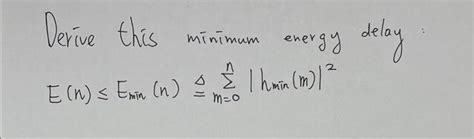 Derive this minimum energy delay :
E(n) ≤ E_min(n) ≜ ∑_{m=0}^{n} |h_min(m)|^2